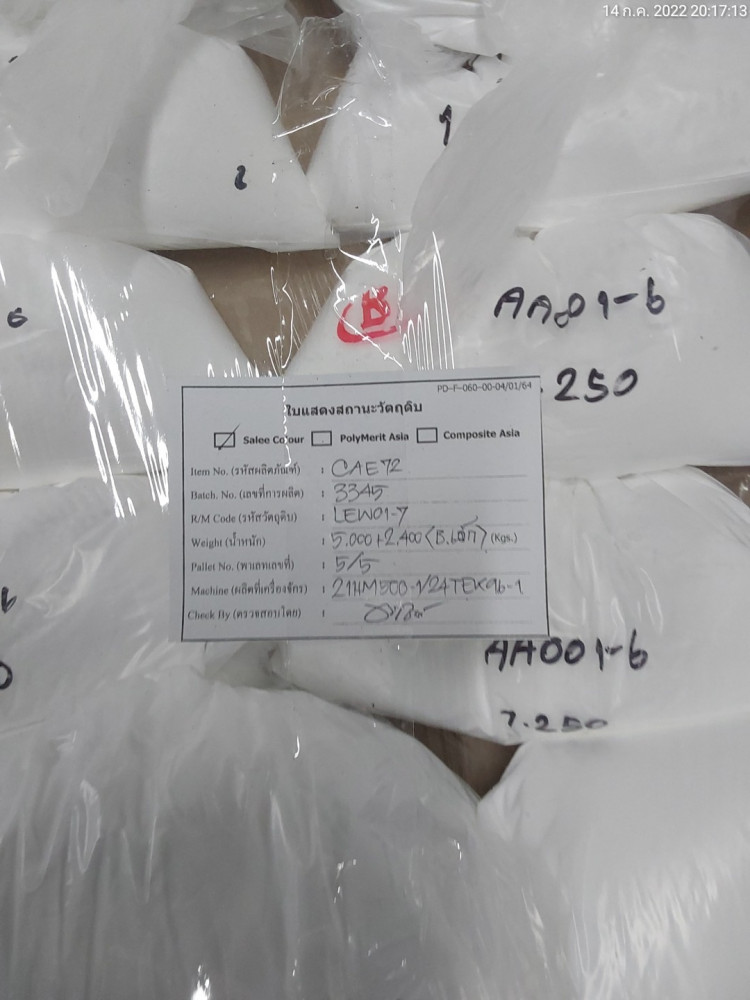 14 ก.ค. 2022 20:17:13
AA01-6
.250
PD-F-060-00-04/01/64
ใบแสดงสถานะวัตถุดิบ
Salee Colour PolyMerit Asia Composite Asia
Item No. (รหัสผลิตภัณฑ์) : CAE72
Batch. No. (เลขที่การผลิต) : 3345
R/M Code (รหัสวัตถุดิบ) : LEW01-7
Weight (น้ำหนัก) : 5.000+2.400 (B.เล็ก) (Kgs.)
Pallet No. (พาเลทเลขที่) : 5/5
Machine (ผลิตที่เครื่องจักร) : 21HM500-1/24TEX96-1
Check By (ตรวจสอบโดย) :
AA001-6
7.250